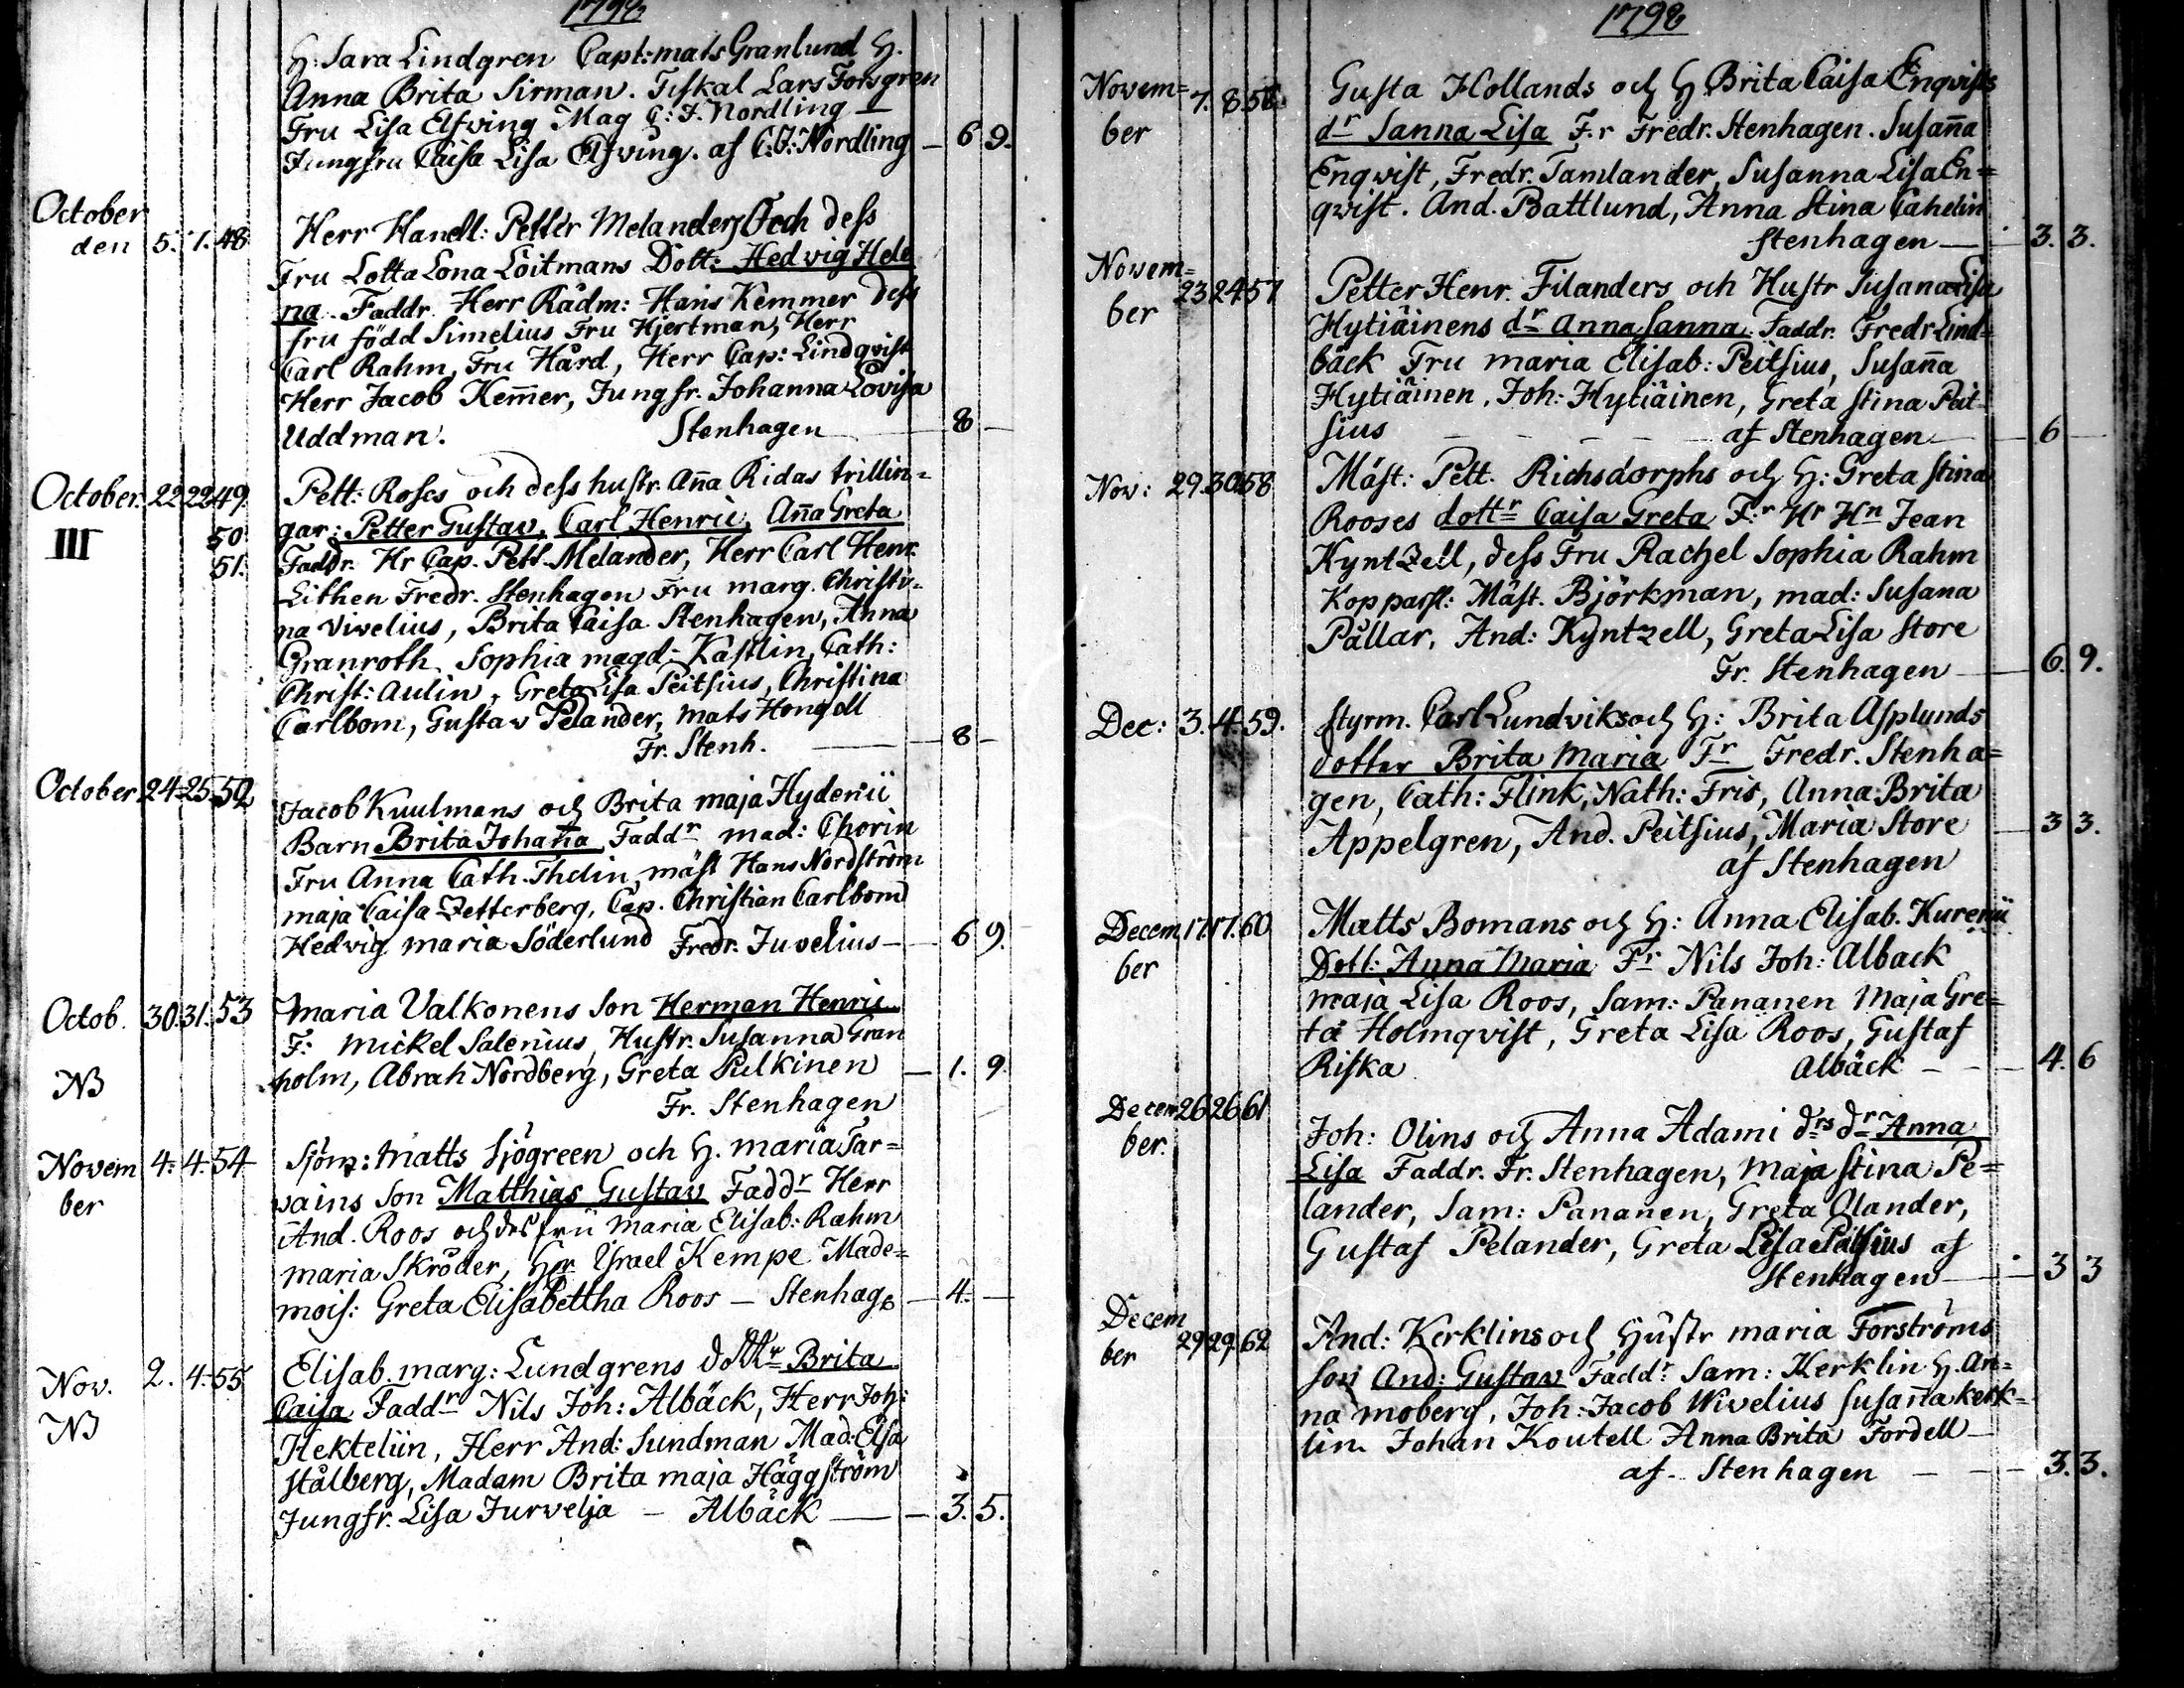 1798
H: Sara Lindgren Capt: mats Granlund H.
Anna Brita Sirman. Fiskal Lars Forsgren
Fru Lisa Elfving Mag C: J. Nordling —
Jungfru Caisa Lisa Elfving. af C: J: Nordling — 6 9.
October
den 5. 7. 48
Herr Handl: Petter Melanders och dess
Fru Lotta Lona Loitmans Dott: Hedvig Hele
na. Faddr. Herr Rådm: Hans Kemmer dess
fru född Simelius Fru Hjertman, Herr
Carl Rahm, Fru Hård, Herr Cap: Lindqvist
Herr Jacob Kem̄er, Jungfr. Johanna Lovisa
Uddman. Stenhagen — 8 —
October. 22 22 49.
50
III
51.
Pett: Roses och dess hustr. An̄a Ridas trillin=
gar: Petter Gustav, Carl Henric, An̄a Greta
Faddr. Hr Cap. Pett. Melander, Herr Carl Henr.
Lithen Fredr. Stenhagen Fru marg. Christi=
na Vivelius, Brita Caisa Stenhagen, Anna
Granroth, Sophia magd: Kastlin, Cath:
Christ: Aulin, Greta Lisa Peitsius, Christina
Carlbom, Gustav Pelander, Mats Hongell
Fr. Stenh. — 8 —
October 24 25 52
Jacob Kuulmans och Brita maja Hydenii
Barn Brita Johan̄a Faddr mad: Chorin
Fru Anna Cath. Thelin, mäst Hans Nordström
maja Caisa Zetterberg, Cap. Christian Carlbom
Hedvig maria Söderlund Fredr. Juvelius — 6 9.
Octob. 30. 31. 53
NB
Maria Valkonens Son Herman Henric
F: Mickel Salenius, Hustr. Susanna Gran
holm, Abrah Nordberg, Greta Pulkinen — 1. 9
Fr. Stenhagen
Novem
ber 4. 4. 54
Sjöm: Matts Sjögreen och H. maria Tar=
vains Son Matthias Gustav Faddr Herr
And. Roos och des fru Maria Elisab: Rahm
maria Skröder, Hr Ysrael Kempe Made=
mois: Greta Elisabettha Roos — Stenhag — 4. —
Nov. 2. 4. 55
NB
Elisab. marg: Lundgrens dottr Brita
Caisa Faddr Nils Joh: Albäck, Herr Joh:
Hektelin, Herr And: Sundman Mad: Elsa
Stålberg, Madam Brita maja Häggström
Jungfr. Lisa Jurvelja — Albäck — 3. 5.
1798
Novem=
ber 7. 8. 56.
Gusta Hollands och H Brita Caisa Enqvists
dr Sanna Lisa F.r Fredr. Stenhagen. Susan̄a
Enqvist, Fredr. Tamlander, Susanna Lisa En=
qvist. And. Battlund, Anna Stina Cahelin
Stenhagen — 3. 3.
Novem=
ber 23 24 57
Petter Henr. Filanders och Hustr Susana Lisa
Hytiäinens dr Anna Sanna. Faddr. Fredr Lind=
bäck Fru maria Elisab: Peitsius, Susan̄a
Hytiäinen, Joh: Hytiäinen, Greta Stina Peit
sius — af Stenhagen — 6 —
Nov: 29. 30. 58
Mäst: Pett. Richsdorphs och H: Greta Stina
Rooses dottr Caisa Greta F:r Hr Hn Jean
Kyntzell, dess Fru Rachel Sophia Rahm
Kopparsl: Mäst. Björkman, mad: Susana
Pallar, And: Kyntzell, Greta Lisa Store
Fr. Stenhagen — 6. 9.
Dec: 3. 4. 59.
Styrm. Carl Lundviks och H: Brita Asplunds
dotter Brita Maria Fr Fredr. Stenha=
gen, Cath: Flink, Nath: Fris, Anna Brita
Appelgren, And. Peitsius, Maria Store — 3 3.
af Stenhagen
Decem
ber 17. 17. 60
Matts Bomans och H: Anna Elisab. Kurenii
Dott: Anna Maria Fr Nils Joh: Alback
maja Lisa Roos, Sam: Pananen Maja Gre=
ta Holmqvist, Greta Lisa Roos, Gustaf
Riska Albäck — 4. 6
Decem
ber. 26 26 61
Joh: Olins och Anna Adami drs dr Anna
Lisa Faddr. Fr. Stenhagen, Maja Stina Pe=
lander, Sam: Pananen, Greta Olander,
Gustaf Pelander, Greta Lisa Peitsius af
Stenhagen — 3 3
Decem
ber 29 29. 62
And: Kerklins och Hustr maria Forströms
son And: Gustav Faddr Sam: Kerklin H. An=
na moberg, Joh: Jacob Wivelius Susan̄a kerk=
lin Johan Koutell Anna Brita Fordell —
af Stenhagen — 3. 3.